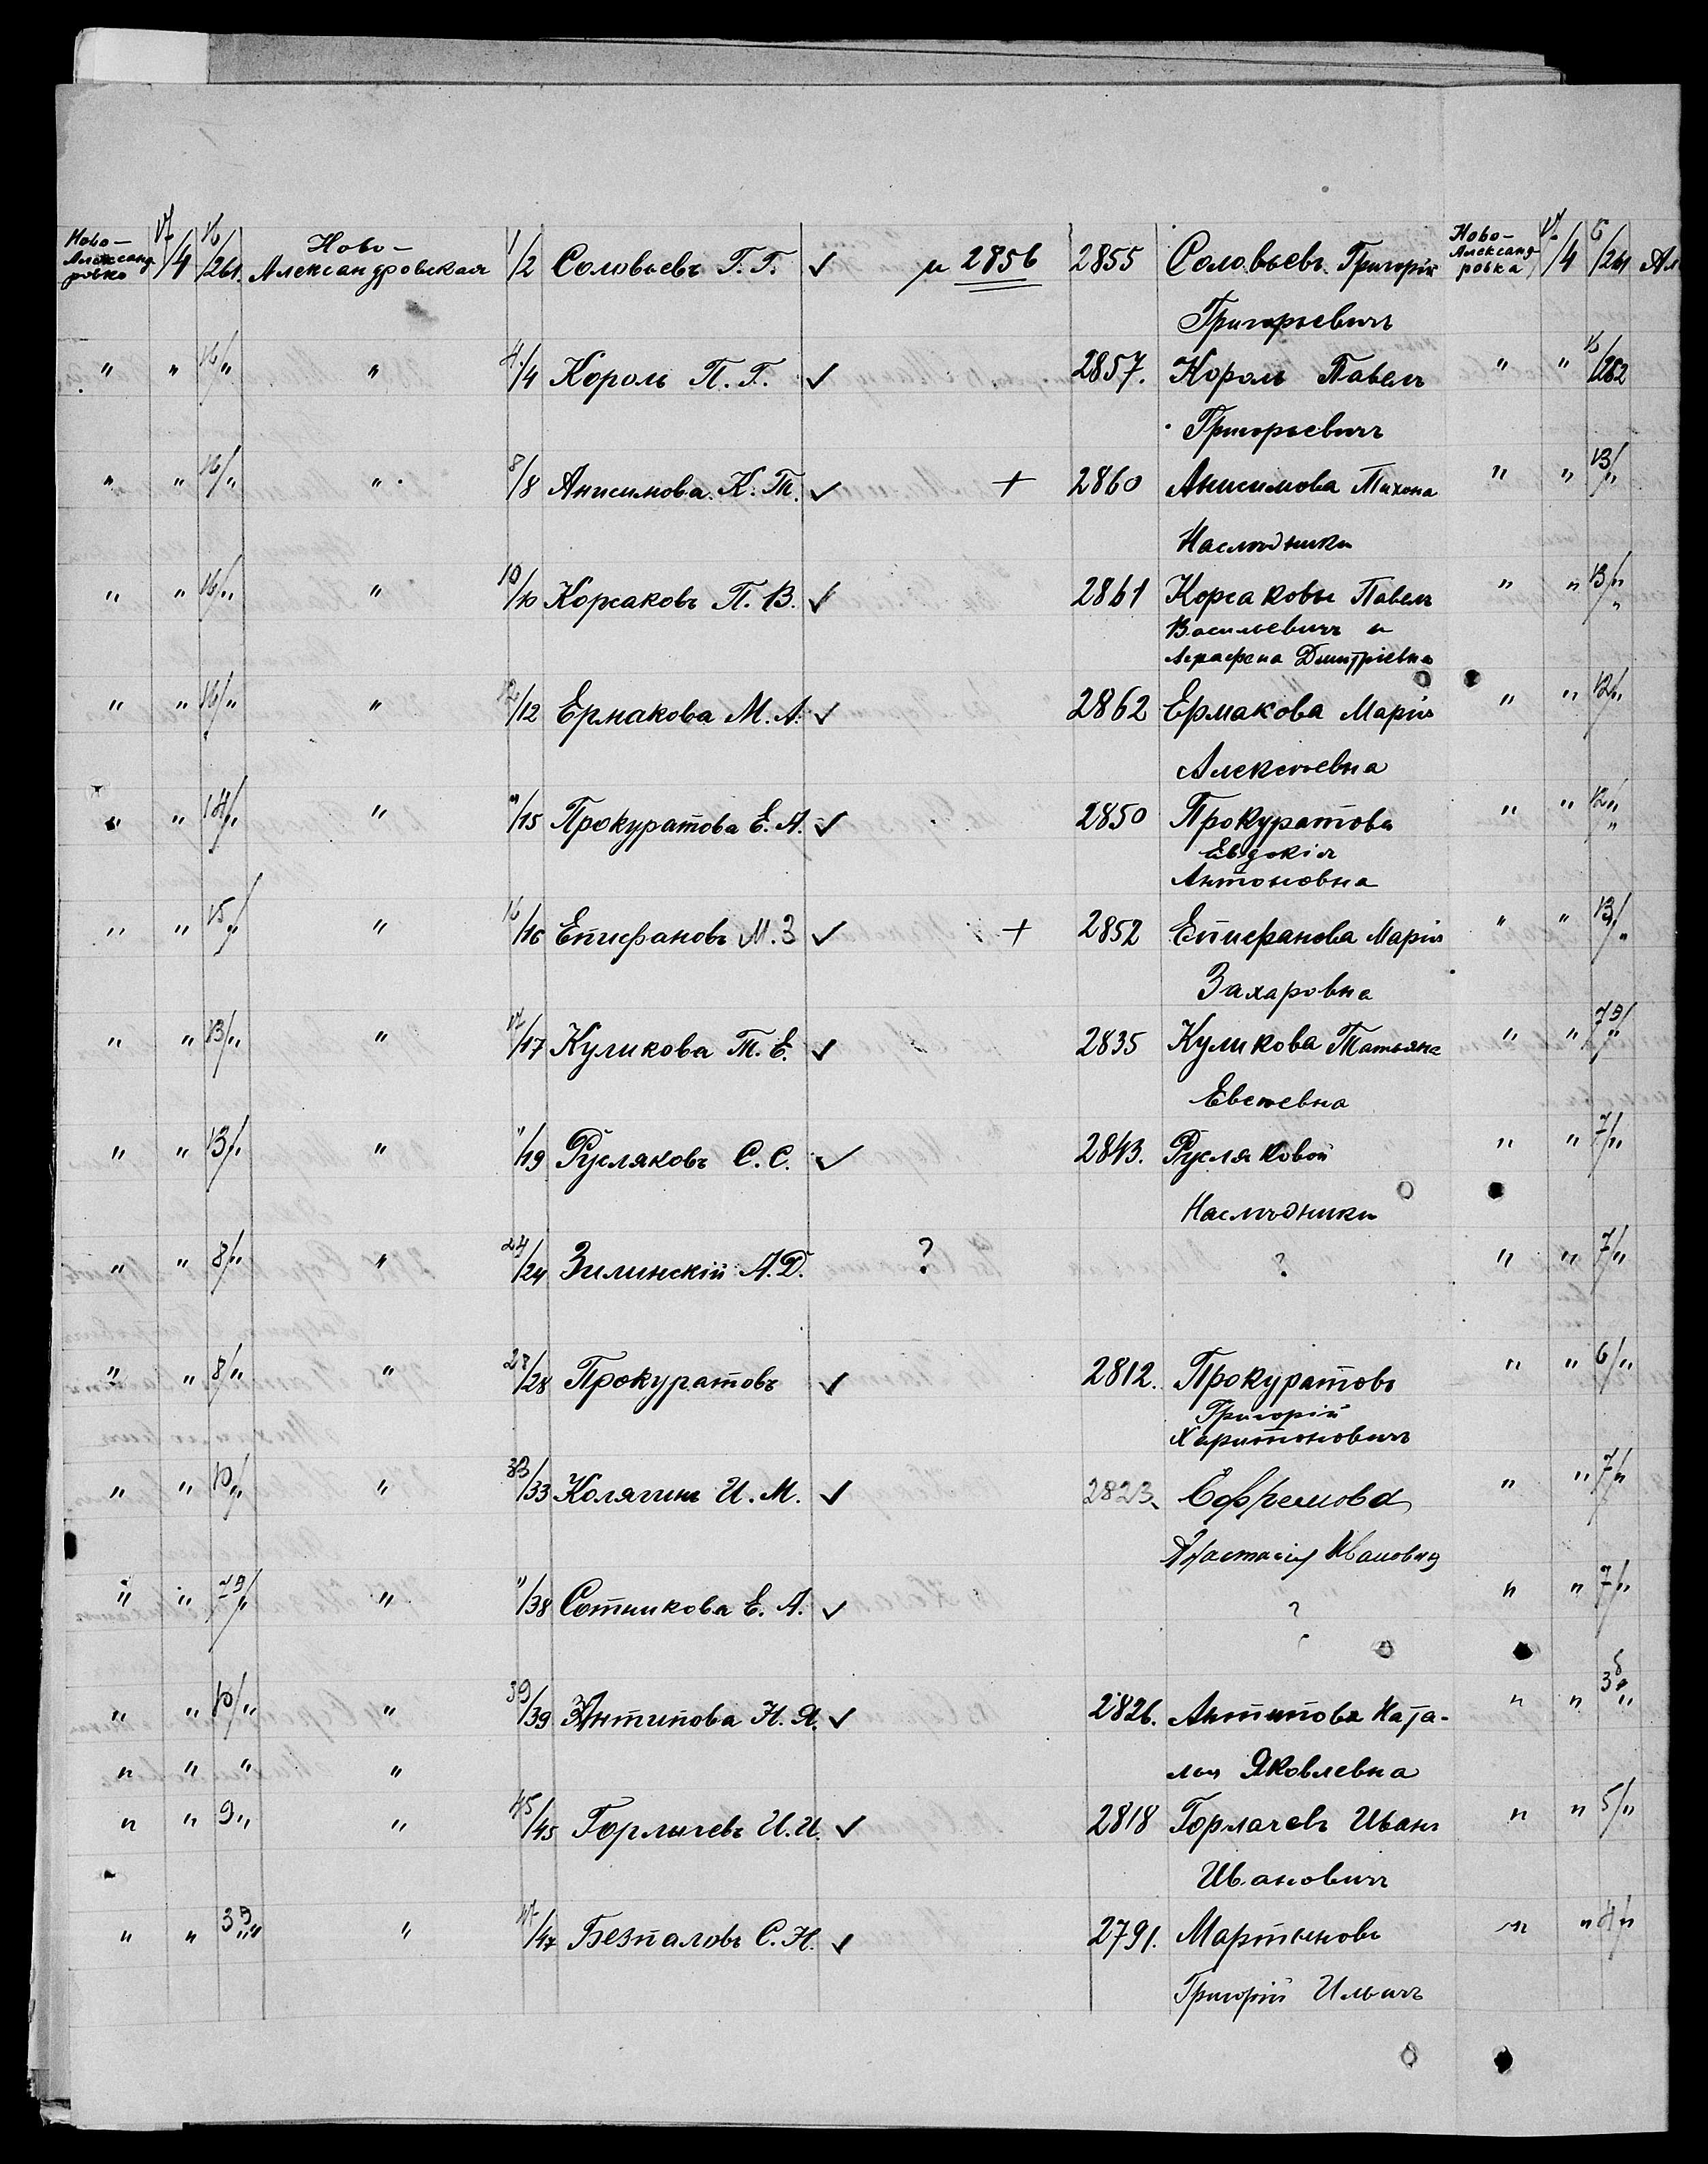 Ново-Александровка 17/4 16/261 Ново-Александровская 1/2 Соловьевъ Г. Г. ✓ и 2856 2855 Соловьевъ Григорій Ново-Александровка 17/4 6/261 Ал
Григорьевичъ
" " 16/" " 4/4 Король П. Г. ✓ 2857. Король Павелъ " " 16/262
Григорьевичъ
" " 16/" " 8/8 Анисимова К. Т. ✓ + 2860 Анисимова Тихона " " 13/"
Наслѣдники
" " 16/" " 10/10 Корсаковъ П. В. ✓ 2861 Корсаковы Павелъ " " 13/"
Васильевичъ и
Аграфена Дмитріевна
" " 16/" " 12/12 Ермакова М. А. ✓ 2862 Ермакова Марія " " 12/"
Алексѣевна
" " 14/" " "/15 Прокуратова Е. А. ✓ 2850 Прокуратова " " 12/"
Евдокія
Антоновна
" " 15/" " 16/16 Епифановъ М. З ✓ + 2852 Епифанова Марія " " 13/"
Захаровна
" " 13/" " 17/17 Куликова Т. Е. ✓ 2835 Куликова Татьяна " " 79/"
Евсѣевна
" " 13/" " "/19 Русляковъ С. С. ✓ 2843. Русляковой " " 7/"
Наслѣдники
" " 8/" " 24/24 Зилинскій А. Д. ? ? " " 7/"
" " 8/" " 28/28 Прокуратовъ ✓ 2812. Прокуратовъ " " 6/"
Григорій
Харитоновичъ
" " 10/" " 33/33 Колягинъ И. М. ✓ 2823. Ефремова " " 7/"
Анастасія Ивановна
" " 79/" " "/38 Сотникова Е. А. ✓ ? " " 7/"
" " 10/" " 39/39 Антипова Н. Я. ✓ 2826. Антипова Ната- " " 38"
" " " " лья Яковлевна
" " 9" " 45/45 Горлычевъ И. И. ✓ 2818 Горлачевъ Иванъ " " 5/"
Ивановичъ
" " 39" " 47/47 Безпаловъ С. Н. ✓ 2791. Мартыновъ " " 4/"
Григорій Ильичъ